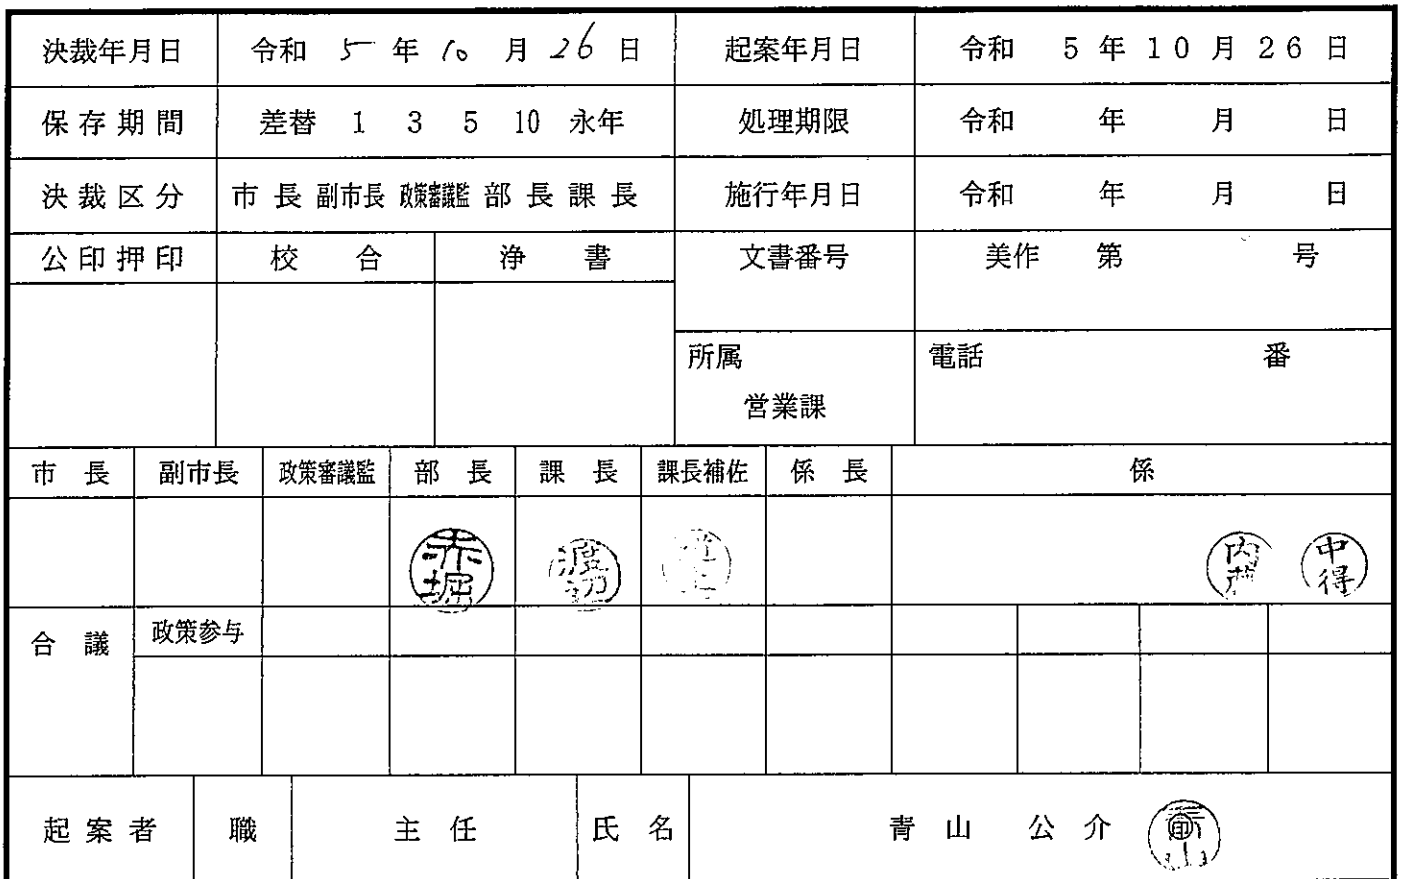 決裁年月日 令和 5 年 10 月 26 日 起案年月日 令和 5 年 10 月 26 日
保存期間 差替 1 3 5 10 永年 処理期限 令和 年 月 日
決裁区分 市長 副市長 政策審議監 部長 課長 施行年月日 令和 年 月 日
公印押印 校合 浄書 文書番号 美作 第 号
所属 電話 番
営業課
市長 副市長 政策審議監 部長 課長 課長補佐 係長 係
赤堀 渡辺 内藤 中得
合議 政策参与
起案者 職 主任 氏名 青山 公介